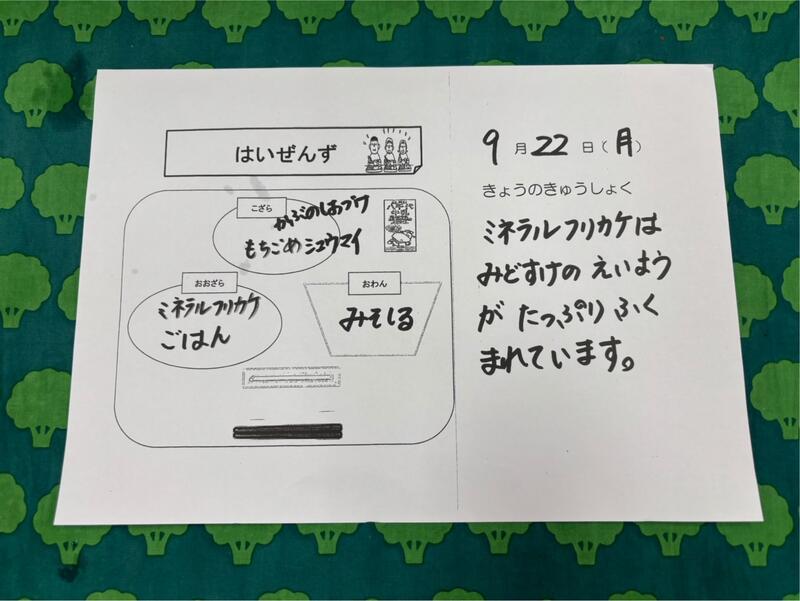 はいぜんず
こざら
かぶのしおづけ
もちごめシュウマイ
おおざら
ミネラルフリカケ
ごはん
おわん
みそしる
9月22日(月)
きょうのきゅうしょく
ミネラルフリカケは
みどすけのえいよう
がたっぷりふく
まれています。